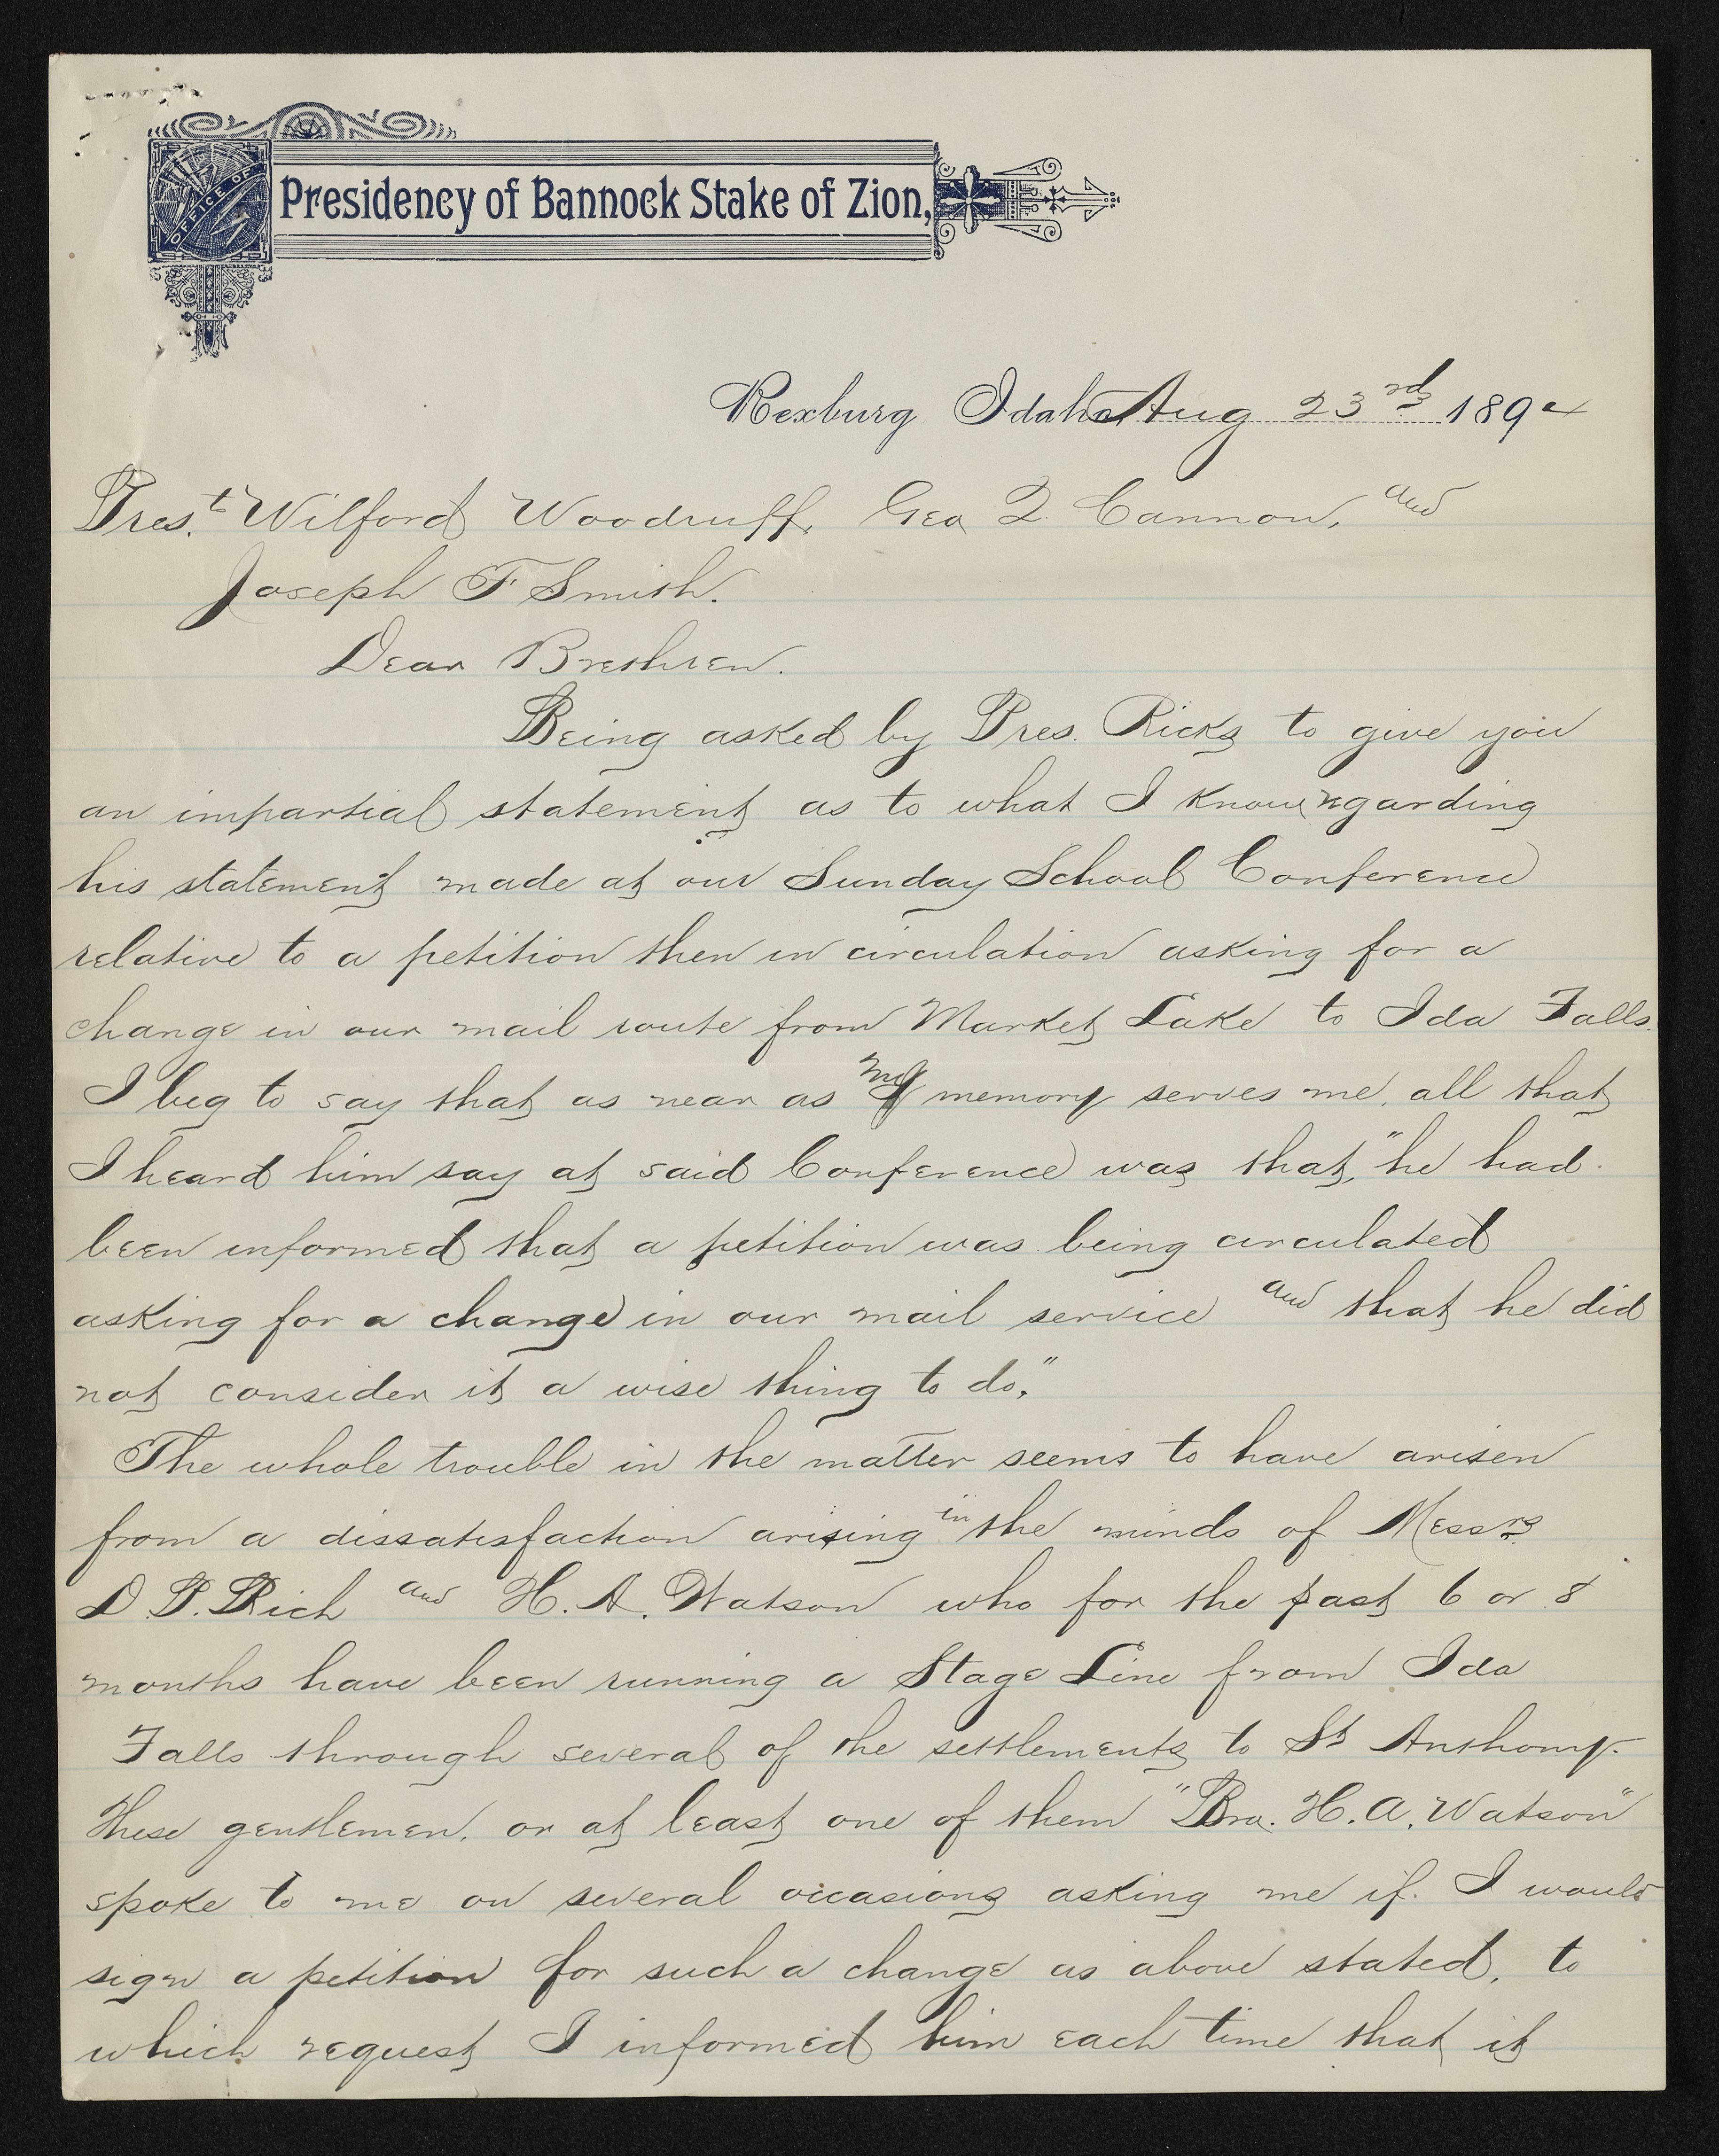 OFFICE OF
Presidency of Bannock Stake of Zion,
Rexburg Idaho Aug 23rd 1894
Pres.t Wilford Woodruff, Geo Q. Cannon, and
Joseph F Smith.
Dear Brethren.
Being asked by Pres. Ricks to give you
an impartial statement as to what I know regarding
his statement made at our Sunday School Conference
relative to a petition then in circulation asking for a
change in our mail route from Market Lake to Ida Falls.
I beg to say that as near as my memory serves me, all that
I heard him say at said Conference was that, "he had
been informed that a petition was being circulated
asking for a change in our mail service and that he did
not consider it a wise thing to do,"
The whole trouble in the matter seems to have arisen
from a dissatisfaction arising in the minds of Messrs
D. P. Rich and H. A. Watson who for the past 6 or 8
months have been running a Stage Line from Ida
Falls through several of the settlements to St Anthony.
These gentlemen, or at least one of them "Bro. H. A. Watson"
spoke to me on several occasions asking me if I would
sign a petition for such a change as above stated, to
which request I informed him each time that it